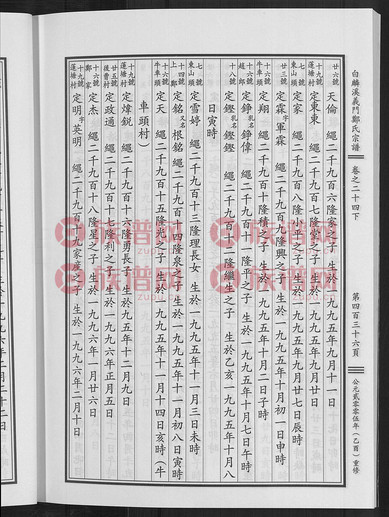 白麟溪義門鄭氏宗譜 卷之二十四下 第四百三十六頁 公元貳零零伍年(乙酉)重修
廿六號 天倫 繩二千九百六隆家之子 生於一九九五年十月十一日
十九號 蓮塘村 定東東 繩二千九百七隆 之子 生於一九九五年九月廿七日辰時
七號 東山頭 定家 繩二千九百八隆小平之子 生於一九九五年九月廿七日辰時
廿三號 定霖 軍霖 繩二千九百九隆興之子 生於一九九五年十月初一日申時
十六號 牛車頭 定翔 繩二千九百十隆積之子 生於一九九五年十月二日子時
十六號 定錚 乳名錚偉 繩二千九百十一隆平之子 生於一九九五年十月七日午時
十八號 定鏗 乳名鏗鏗 繩二千九百十二隆繼生之子 生於乙亥一九九五年十月八
日寅時
七號 東山頭 定雪婷 繩二千九百十三隆理長女 生於一九九五年十一月三日未時
十四號 上鄭 定銘 又名根銘 繩二千九百十四隆泉之子 生於一九九五年十一月初八日寅時
十六號 牛車頭 定天 繩二千九百十五隆光之子 生於一九九五年十一月十四日亥時(牛
車頭村)
十九號 蓮塘村 定煒鋭 繩二千九百十六隆勇長子 生於一九九五年十二月九日
廿五號 後曹村 定政通 繩二千九百十七隆利之子 生於一九九六年正月五日
十六號 鄭家 定杰 繩二千九百十八隆星之子 生於一九九六年一月廿六日
十九號 蓮塘村 定明 字英明 繩二千九百十九家彦之子 生於一九九六年二月十日
族譜网